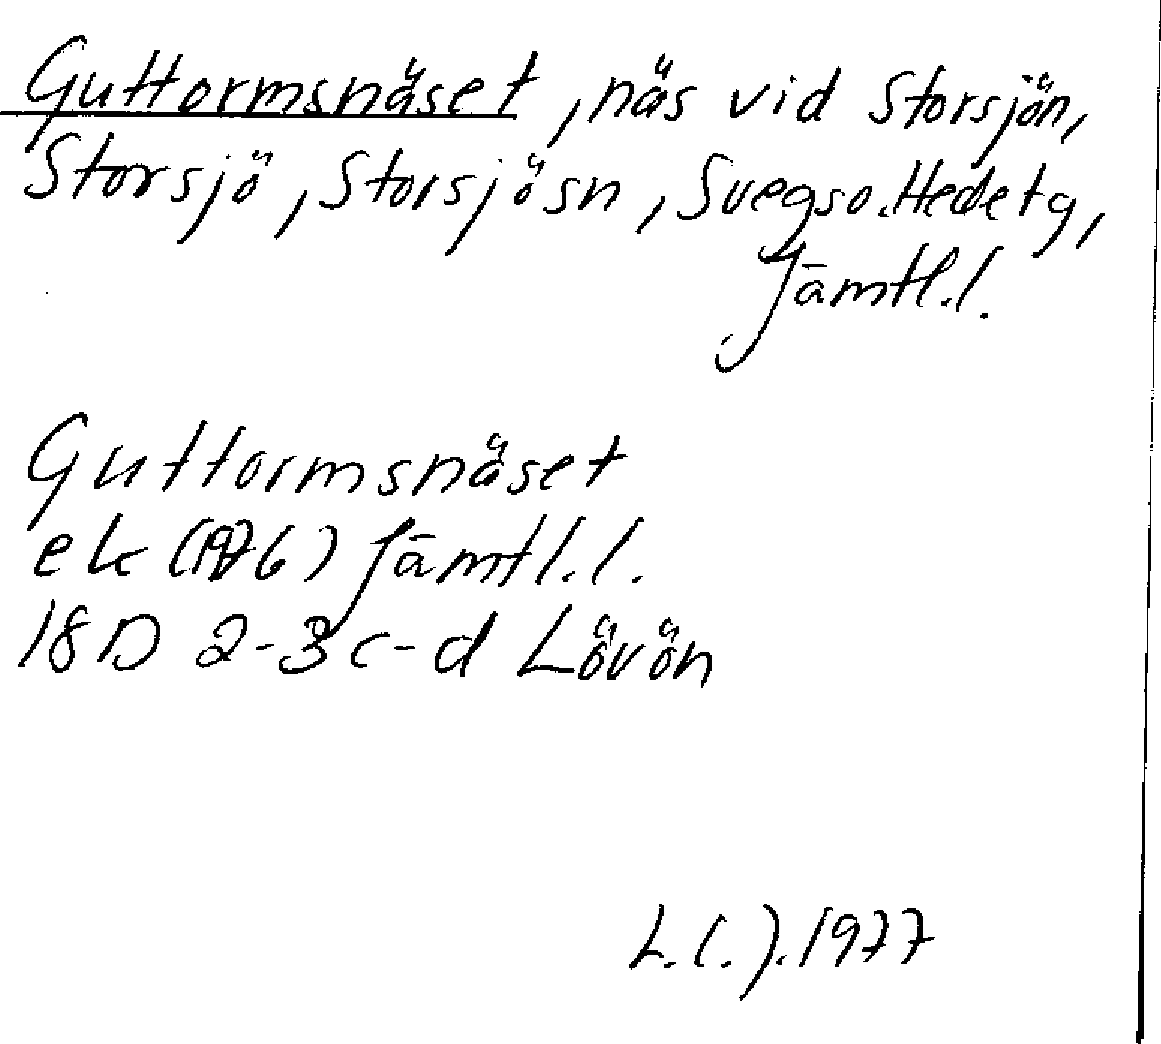 Guttormsnäset, näs vid Storsjön,
Storsjö, Storsjösn, Svegso.Hedetg,
Jämtl.l.
Guttormsnäset
ek (1976) Jämtl.l.
18D 2-3 c-d Lövön
L.C.J. 1977